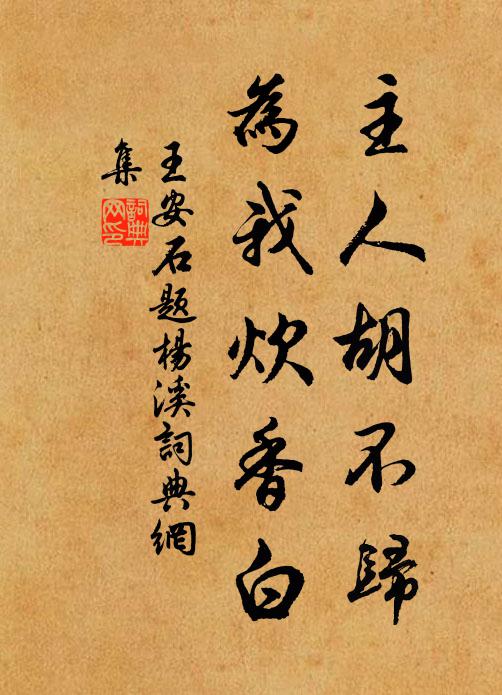 主人胡不歸
為我炊香白
王安石題楊溪詞典網
集
詞典網印